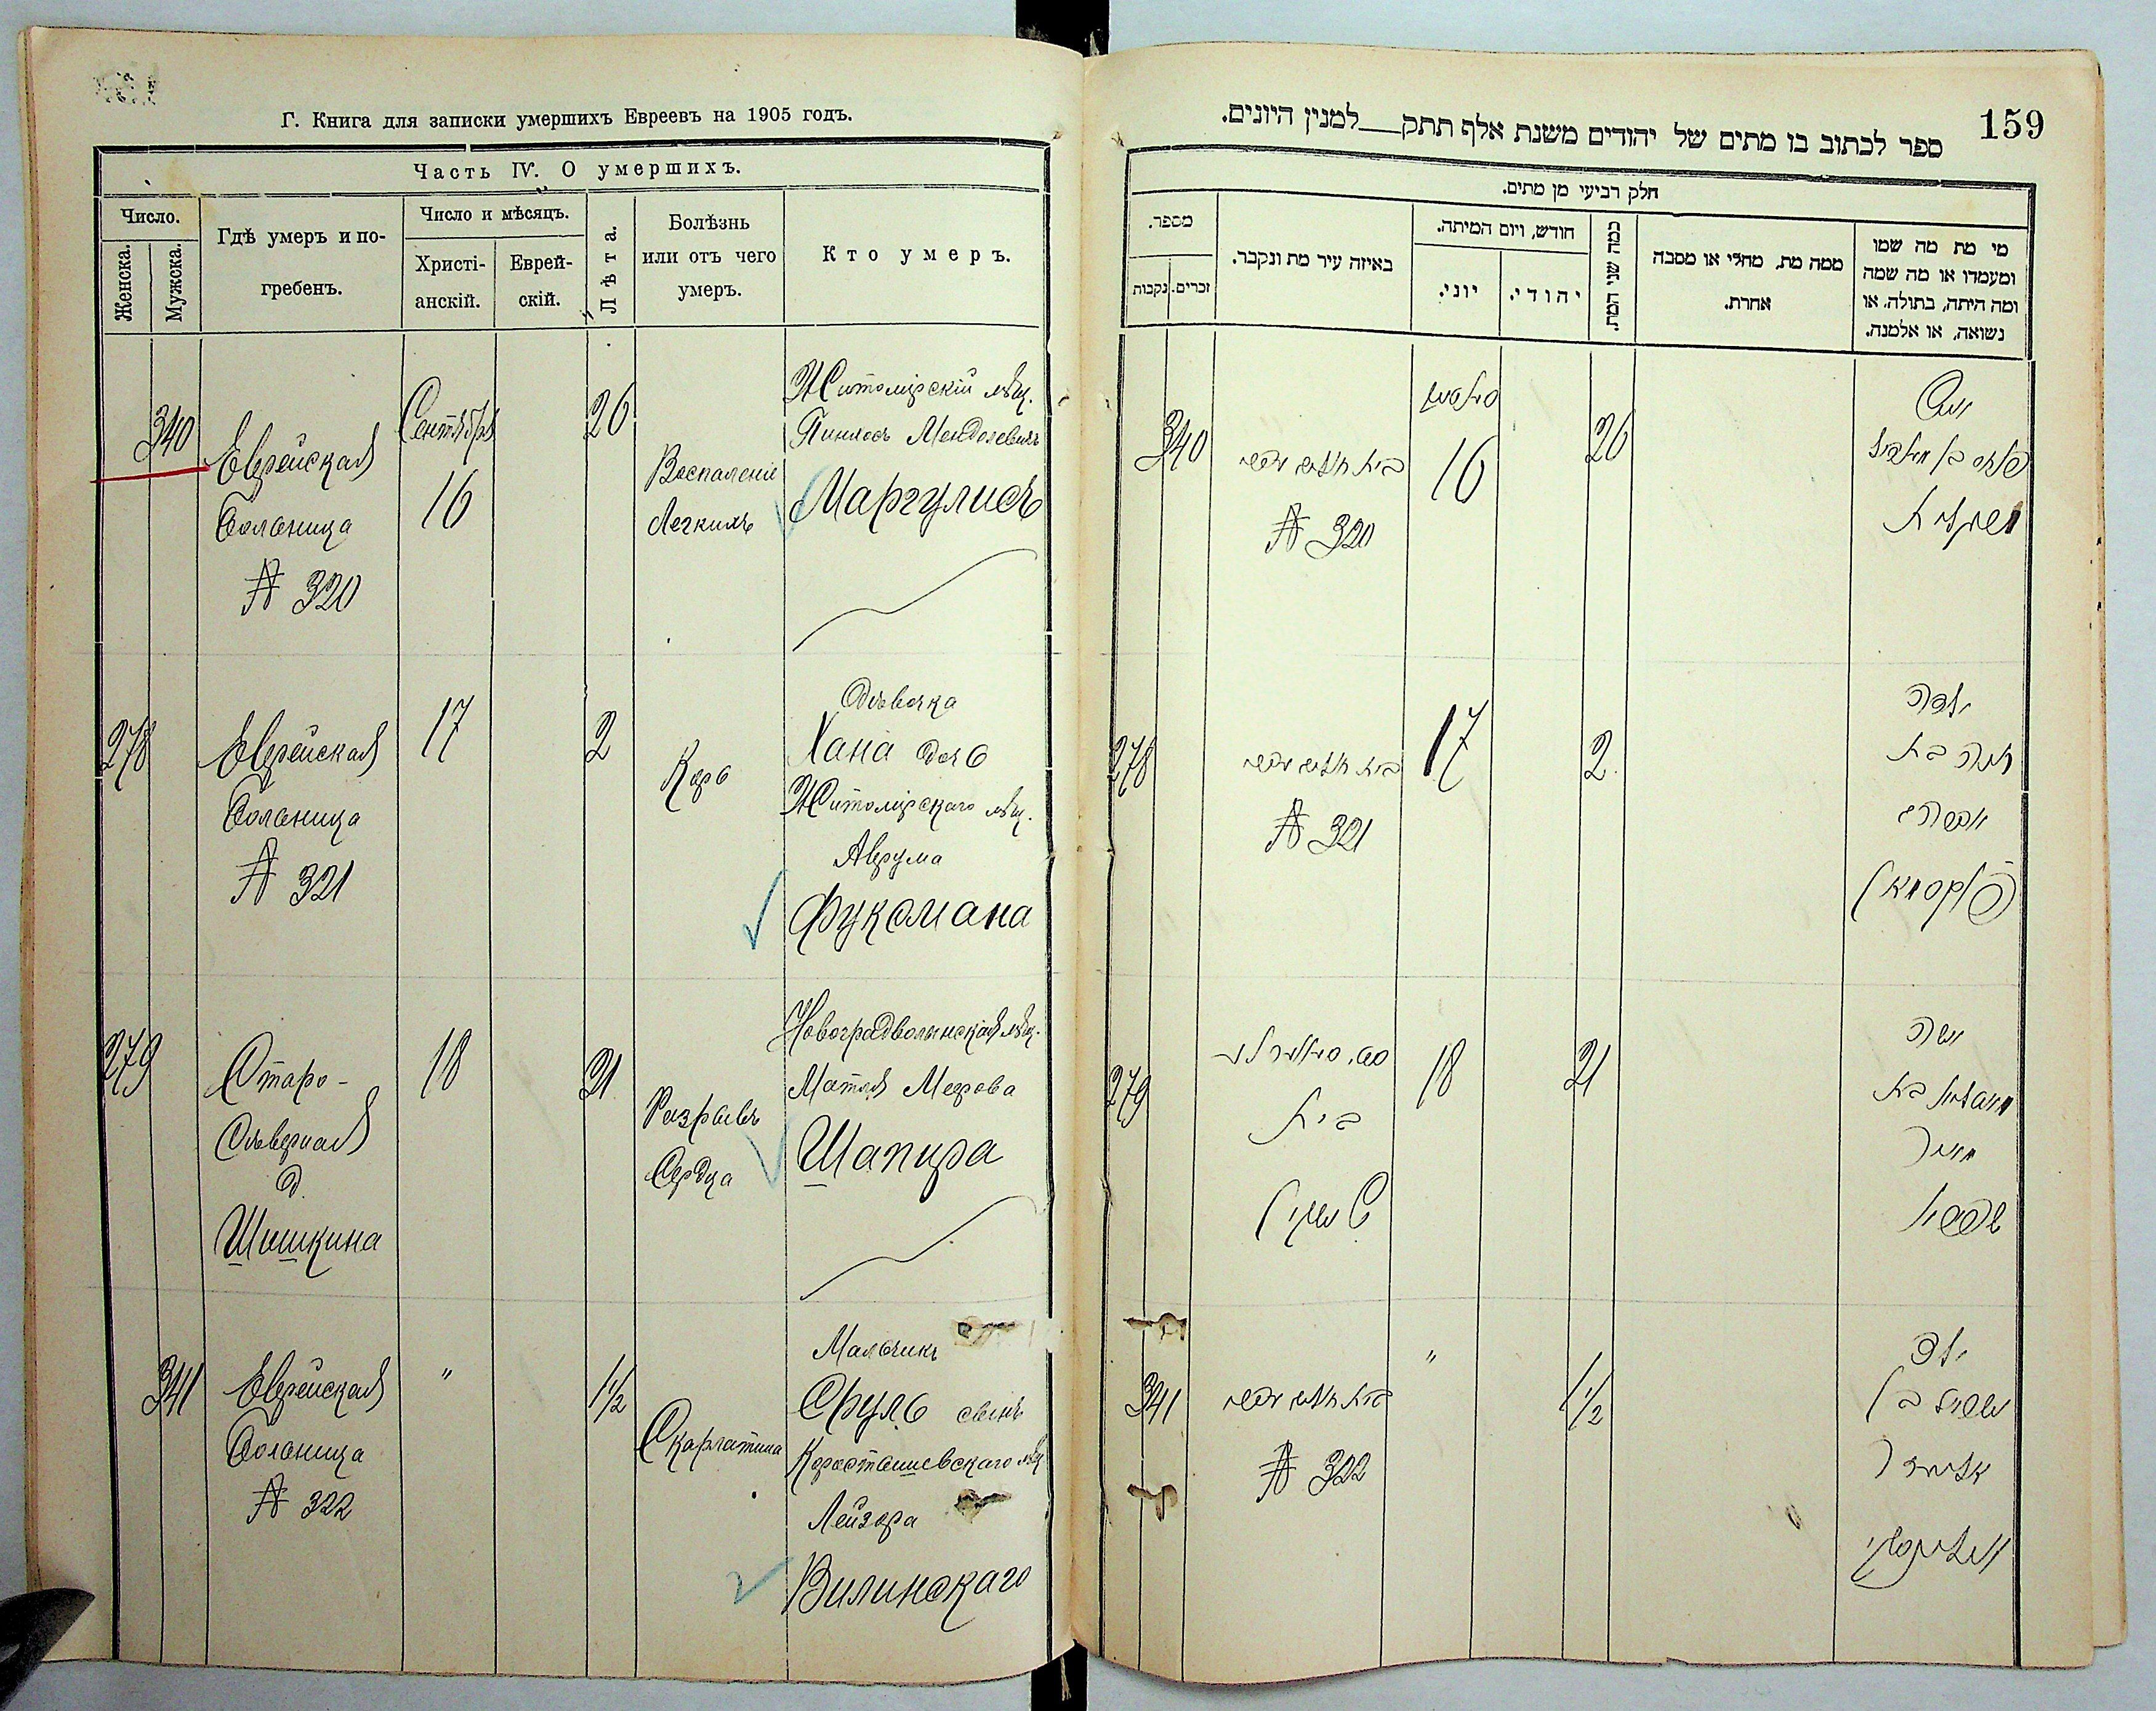 Г. Книга для записки умершихъ Евреевъ на 1905 годъ.
Часть IV. О умершихъ.
Число.
Женска.
Мужска.
Гдѣ умеръ и по-
гребенъ.
Число и мѣсяцъ.
Христі-
анскій.
Еврей-
скій.
Лѣта.
Болѣзнь
или отъ чего
умеръ.
Кто умеръ.
340
Еврейская
Больница
№ 320
Сентября
16
26
Воспаленіе
Легкихъ
Житомірскій мѣщ.
Пинхосъ Менделевичъ
Маргулисъ
278
Еврейская
Больница
№ 321
17
2
Корь
Дѣвочка
Хана дочь
Житомірскаго мѣщ.
Аврума
Фуксмана
279
Старо-
Сѣверная
д.
Шишкина
18
21
Разрывъ
Сердца
Новоградволынская мѣщ.
Мотля Меерова
Шапира
341
Еврейская
Больница
№ 322
"
1½
Скарлатина
Мальчикъ
Сруль сынъ
Коростышевскаго мѣщ
Лейзера
Вилинскаго
159
ספר לכתוב בו מתים של יהודים משנת אלף תתק__למנין היונים.
חלק רביעי מן מתים.
מספר.
זכרים.
נקבות
באיזה עיר מת ונקבר.
חודש, ויום המיתה.
יוני.
יהודי.
כמה שני המת.
ממה מת, מחלי או מסבה
אחרת.
מי מת מה שמו
ומעמדו או מה שמה
ומה היתה, בתולה, או
נשואה, או אלמנה.
340
№ 320
16
26
איש
פנחס בן מענדיל
מרגליות
278
№ 321
17
2
ילדה
חנה בת
אברהם
פוקסמאן
279
בית
שישקין
18
21
אשה
בת
מאיר
שפירא
341
№ 322
"
1½
ילד
ישראל בן
אליעזר
ווילינסקי